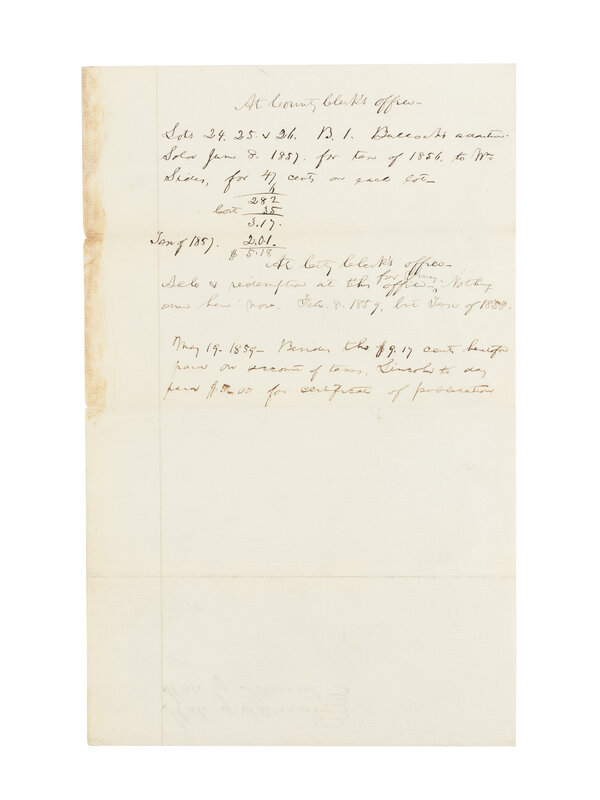 At County Clerk's office
Lots 24. 25. & 26. B. 1. Bullock's addition
Sold Jan 8. 1857. for tax of 1856. to Wm
Sides, for 47 cents on each lot
6
282
Cost 35
3.17.
Tax of 1857. 2.01.
$ 5.18
At City Clerk's office
Sale & redemption at this office. Nothing
due here now. Feb. 8. 1859, but Tax of 1858.
May 19. 1859 - Besides the $9.17 cents heretofore
paid on account of taxes, Lincoln to day
paid $5.00 for certificate of publication